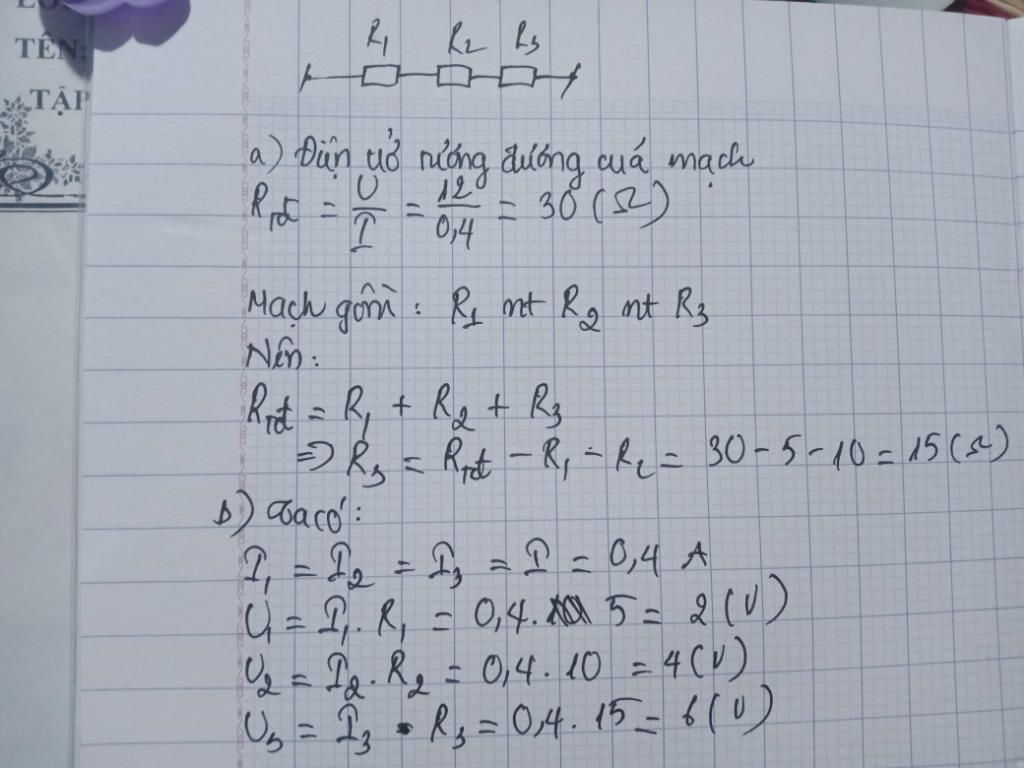 TÊN:
TẬP
R₁ R₂ R₃
a) Điện trở tương đương của mạch
R_tđ = U/I = 12/0,4 = 30 (Ω)
Mạch gồm : R₁ nt R₂ nt R₃
Nên:
R_tđ = R₁ + R₂ + R₃
⇒ R₃ = R_tđ − R₁ − R₂ = 30 − 5 − 10 = 15 (Ω)
b) Ta có :
I₁ = I₂ = I₃ = I = 0,4 A
U₁ = I₁. R₁ = 0,4. 5 = 2 (V)
U₂ = I₂. R₂ = 0,4 . 10 = 4 (V)
U₃ = I₃ . R₃ = 0,4 . 15 = 6 (V)